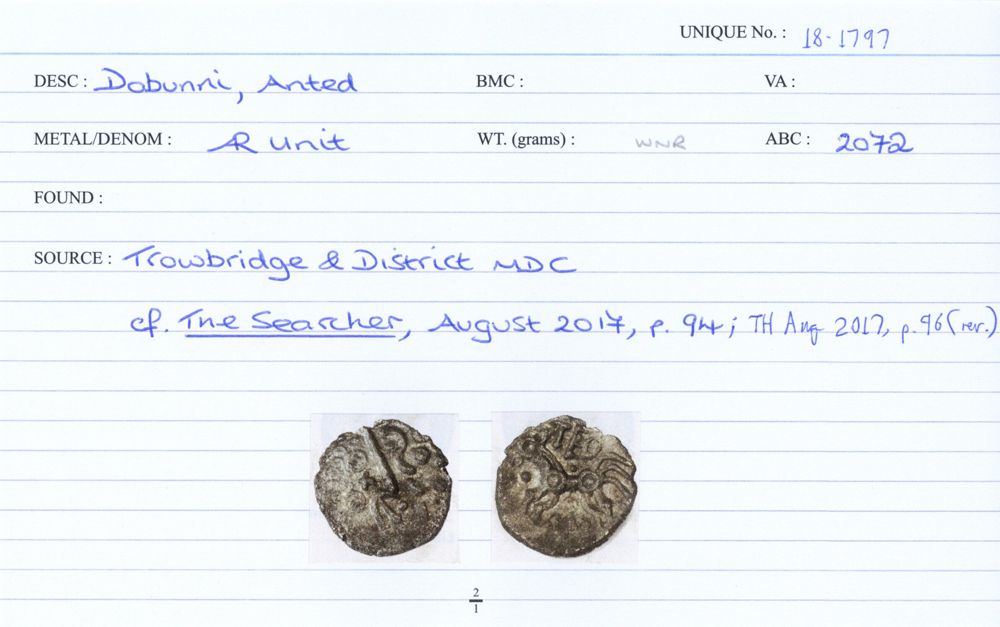 UNIQUE No. : 18-1797
DESC : Dobunni, Anted BMC : VA :
METAL/DENOM : AR Unit WT. (grams) : WNR ABC : 2072
FOUND :
SOURCE : Trowbridge & District MDC
cf. The Searcher, August 2017, p. 94; TH Aug 2017, p.96 (rev.)
TED
2
1